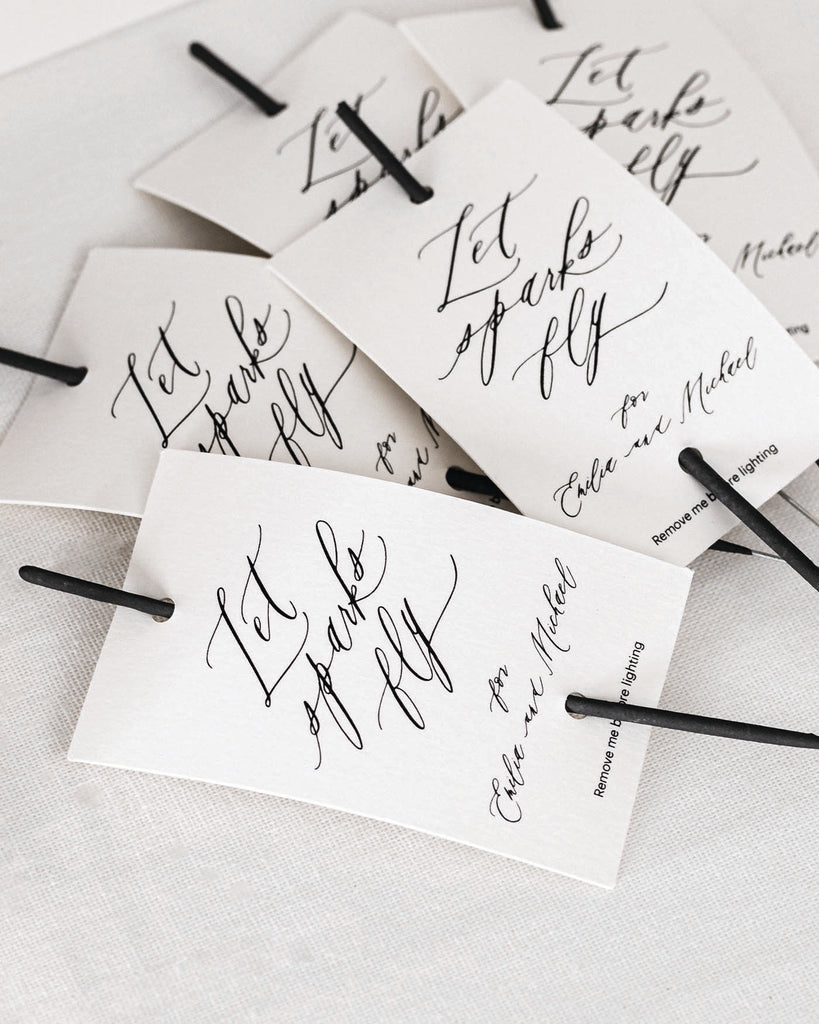 Let
sparks
fly
Michael
Let
sparks
Let
sparks
fly
for
Emilia and Michael
Remove me before lighting
Let
sparks
fly
for
and
Let
sparks
fly
for
Emilia and Michael
Remove me before lighting